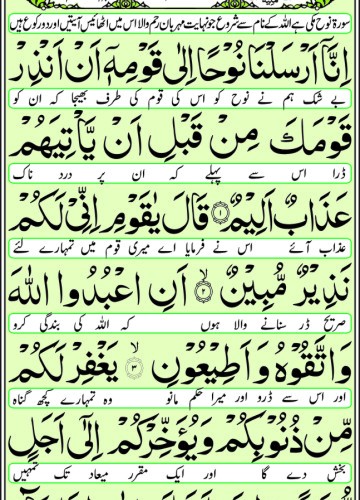 سورۃ نوح مکی ہے اللہ کے نام سے شروع جو نہایت مہربان رحم والا اس میں اٹھائیس آیتیں اور دو رکوع ہیں
اِنَّاۤ اَرْسَلْنَا نُوْحًا اِلٰى قَوْمِهٖۤ اَنْ اَنْذِرْ
بے شک ہم نے نوح کو اس کی قوم کی طرف بھیجا کہ ان کو
قَوْمَكَ مِنْ قَبْلِ اَنْ يَّاْتِيَهُمْ
ڈرا اس سے پہلے کہ ان پر درد ناک
عَذَابٌ اَلِيْمٌ ۝۱ قَالَ يٰقَوْمِ اِنِّيْ لَكُمْ
عذاب آئے اس نے فرمایا اے میری قوم میں تمہارے لئے
نَذِيْرٌ مُّبِيْنٌ ۝۲ۙ اَنِ اعْبُدُوا اللّٰهَ
صریح ڈر سنانے والا ہوں کہ اللہ کی بندگی کرو
وَاتَّقُوْهُ وَاَطِيْعُوْنِ ۝۳ۙ يَغْفِرْ لَكُمْ
اور اس سے ڈرو اور میرا حکم مانو وہ تمہارے کچھ گناہ
مِّنْ ذُنُوْبِكُمْ وَيُؤَخِّرْكُمْ اِلٰۤى اَجَلٍ
بخش دے گا اور ایک مقرر میعاد تک تمہیں